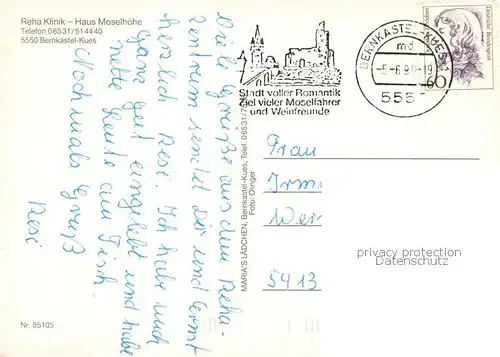 Reha Klinik – Haus Moselhöhe
Telefon 06531/514440
5550 Bernkastel-Kues
Viele Grüße aus dem Reha-
Zentrum sendet Dir und Ernst
herzlich Resi. Ich habe mich
ganz gut eingelebt und habe
nette Leute am Tisch.
Nochmals Gruß
Resi
Nr. 85105
MARIA'S LÄDCHEN, Bernkastel-Kues, Telef. 06531/
Foto: Olinger
Stadt voller Romantik
Ziel vieler Moselfahrer
und Weinfreunde
BERNKASTEL-KUES
md
555
Deutsche Bundespost
60
Frau
Irm
Wer
5413
privacy protection
www.akpool.de